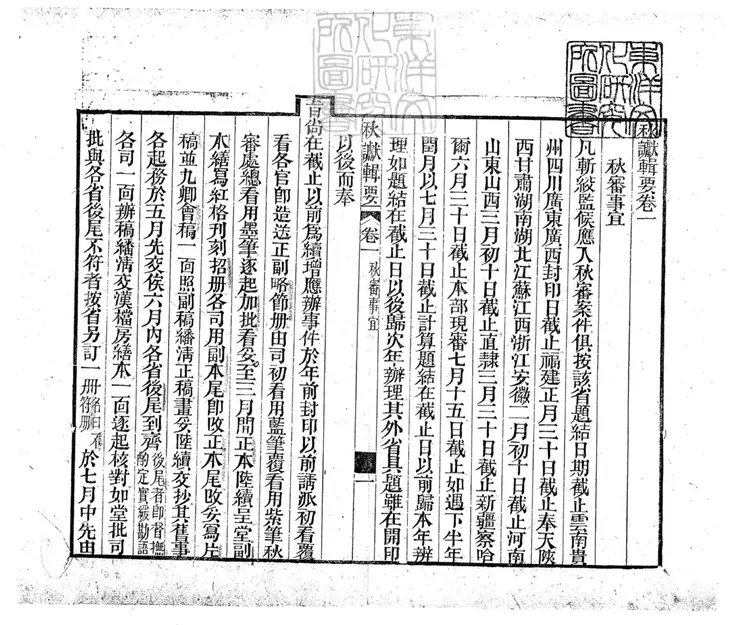 東洋文化研究院圖書
秋讞輯要卷一
秋審事宜
凡斬絞監候應入秋審案件俱按該省題結日期截止雲南貴
州四川廣東廣西封印日截止福建正月三十日截止奉天陝
西甘肅湖南湖北江蘇江西浙江安徽二月初十日截止河南
山東山西三月初十日截止直隸三月三十日截止新疆察哈
爾六月三十日截止本部現審七月十五日截止如遇下半年
閏月以七月三十日截止計算題結在截止日以前歸本年辦
理如題結在截止日以後歸次年辦理其外省具題雖在開印
以後而奉
秋讞輯要 卷一 秋審事宜 一
旨尙在截止以前爲續增應辦事件於年前封印以前請派初看覆
看各官卽造送正副略節册由司初看用藍筆覆看用紫筆秋
審處總看用墨筆逐起加批看妥至三月間正本陸續呈堂副
本繕寫紅格刊刻招册各司用副本尾卽改正本尾改妥寫片
稿並九卿會稿一面照副稿繙淸正稿畫妥陸續交抄其舊事
各起務於五月先交俟六月內各省後尾到齊後尾者卽督撫酌定實緩勘語
各司一面辦稿繙淸交漢檔房繕本一面逐起核對如堂批司
批與各省後尾不符者按省另訂一册名曰不符册於七月中先由